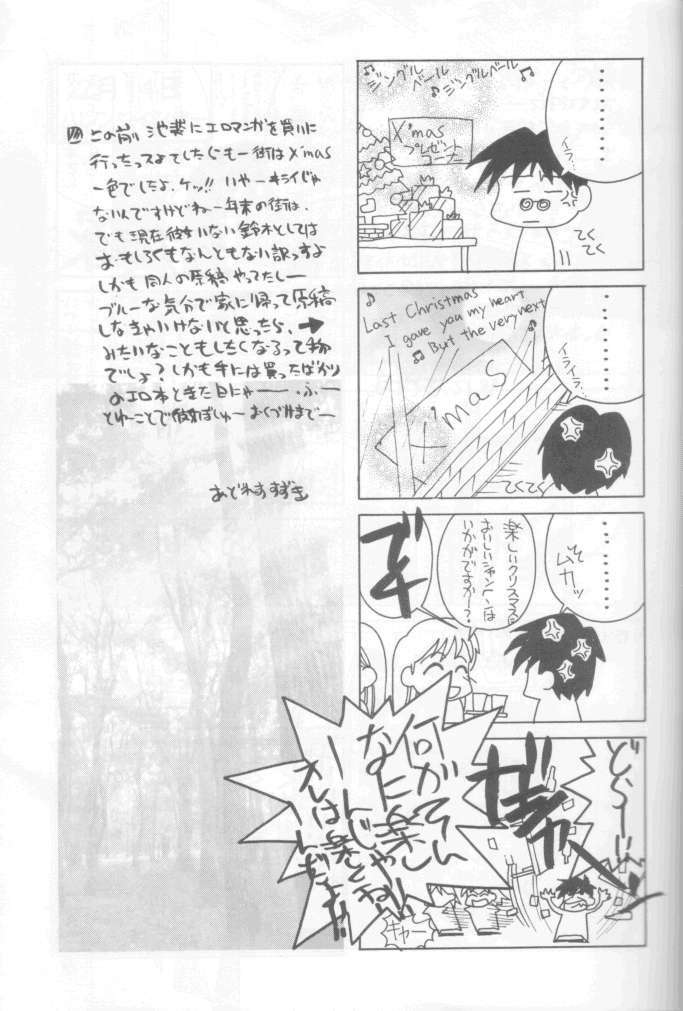 ♪ジングル
ベール♪
♪ジングルベール♪
・・・・・・・・
イラ…
X'mas
プレゼント
コーナー
てく
てく
♪
Last Christmas
I gave you my heart
♪But the very next
・・・・・・・・
イライラ…
X'mas
てくてく
・・・・・・・・
ムカッ
楽しいクリスマスに
おいしいシャンペンは
いかがですかー?
どーい
キャー
この前池袋にエロマンガを買いに
行ったってよてしたらもー街はX'mas
一色でしたよ、ケッ!! いやーキライじゃ
ないんですけどねー年末の街は、
でも現在彼女いない鈴木としては
おもしろくもなんともない訳っすよ
しかも同人の原稿やってたしー
ブルーな気分で家に帰って原稿
しなきゃいけないと思ったら、→
みたいなこともしたくなるって物
でしょ?しかも手には買ったばかり
のエロ本ときた日にゃーー…ふー
とゆーことで おくづけまでー
あどれすすずき
何がそんなに楽しーんじゃねい
オレは楽しくねーんだよ!!